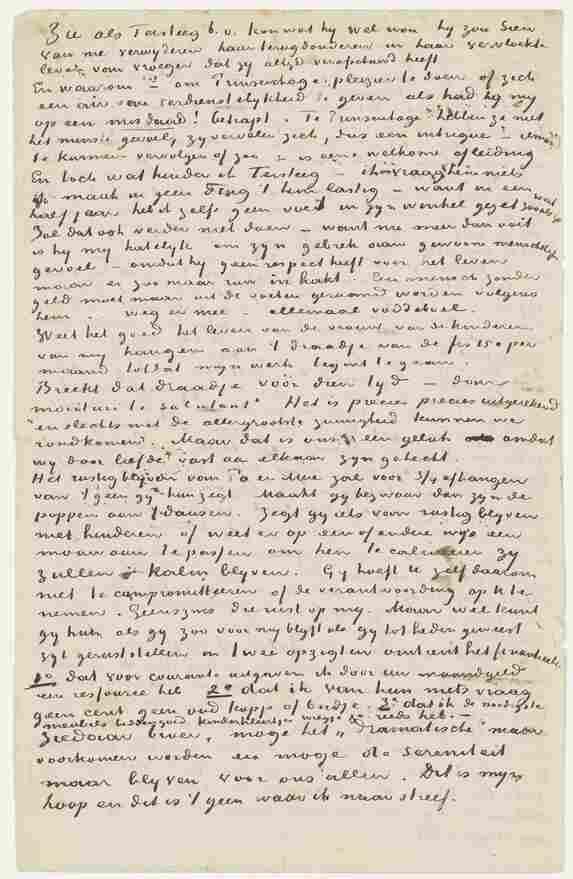 Zie als Tersteeg b.v. kon wat hij wel wou hij zou Sien
van me verwyderen haar terugdonderen in haar vervloekte
leven van vroeger dat zy altyd verafschuwd heeft
En waarom om Princenhage plezier te doen of zich
een air van verdienstelykheid te geven als had hy my
op een misdaad! betrapt. Te Princenhage hebben ze met
het mensch gevoel, zy vervelen zich, dus een intrigue!
te kunnen vervolgen of zoo – is eene welkome afleiding
En toch wat hinder ik Tersteeg – ik vraag hem niets
maak in geen ding 't hem lastig – want in een
half jaar heb ik zelfs geen voet in zyn winkel gezet
Zal dat ook verder niet doen – want me meer dan ooit
is hy my hatelyk om zyn gebrek aan gewoon menschelyk
gevoel – omdat hy geen respect heeft voor het leven
maar er zoo maar ruw in hakt. Een mensch zonder
geld moet maar uit de voeten geruimd worden volgens
hem. weg er mee. allemaal voddeboel.
Weet het goed het leven van de vrouw van de kinderen
van my hangen aan 't draadje van de frs 150 per
maand totdat myn werk begint te gaan.
Breekt dat draadje vóór dien tyd – dan
morituri te salutant. Het is precies precies uitgerekend
en slechts met de allergrootste zuinigheid kunnen we
rondkomen. Maar dat is ons geen geluk omdat
wy door liefde vast aan elkaar zyn gehecht.
Het rustig blyven van Pa en Moe zal voor 3/4 afhangen
van 't geen gy hun zegt. Maakt gy bezwaar dan zyn de
poppen aan 't dansen. Zegt gy iets voor rustig blyven
niet hinderen of weet er op een of andere wys een
mouw aan te passen om hen te calmeeren zy
zullen kalm blyven. Gy hoeft U zelf daarom
niet te compromitteeren of de verantwoording op U te
nemen. Geenszins die rust op my. Maar wel kunt
gy hun als gy zoo voor my blyft als gy tot heden geweest
zyt geruststellen in twee opzigten omtrent het finantieele
1º dat voor courante uitgaven ik door uw maandgeld
een ressource heb 2º dat ik van hun niets vraag
geen cent geen oud kopje of bordje. 3º dat ik de noodigste
meubles beddegoed kinderkleertjes wiegje &c reeds heb. –
Ziedaar broer, moge het „dramatische" maar
voorkomen worden en moge de sereniteit
maar blyven voor ons allen. Dit is myn
hoop en dit is 't geen waar ik naar streef.